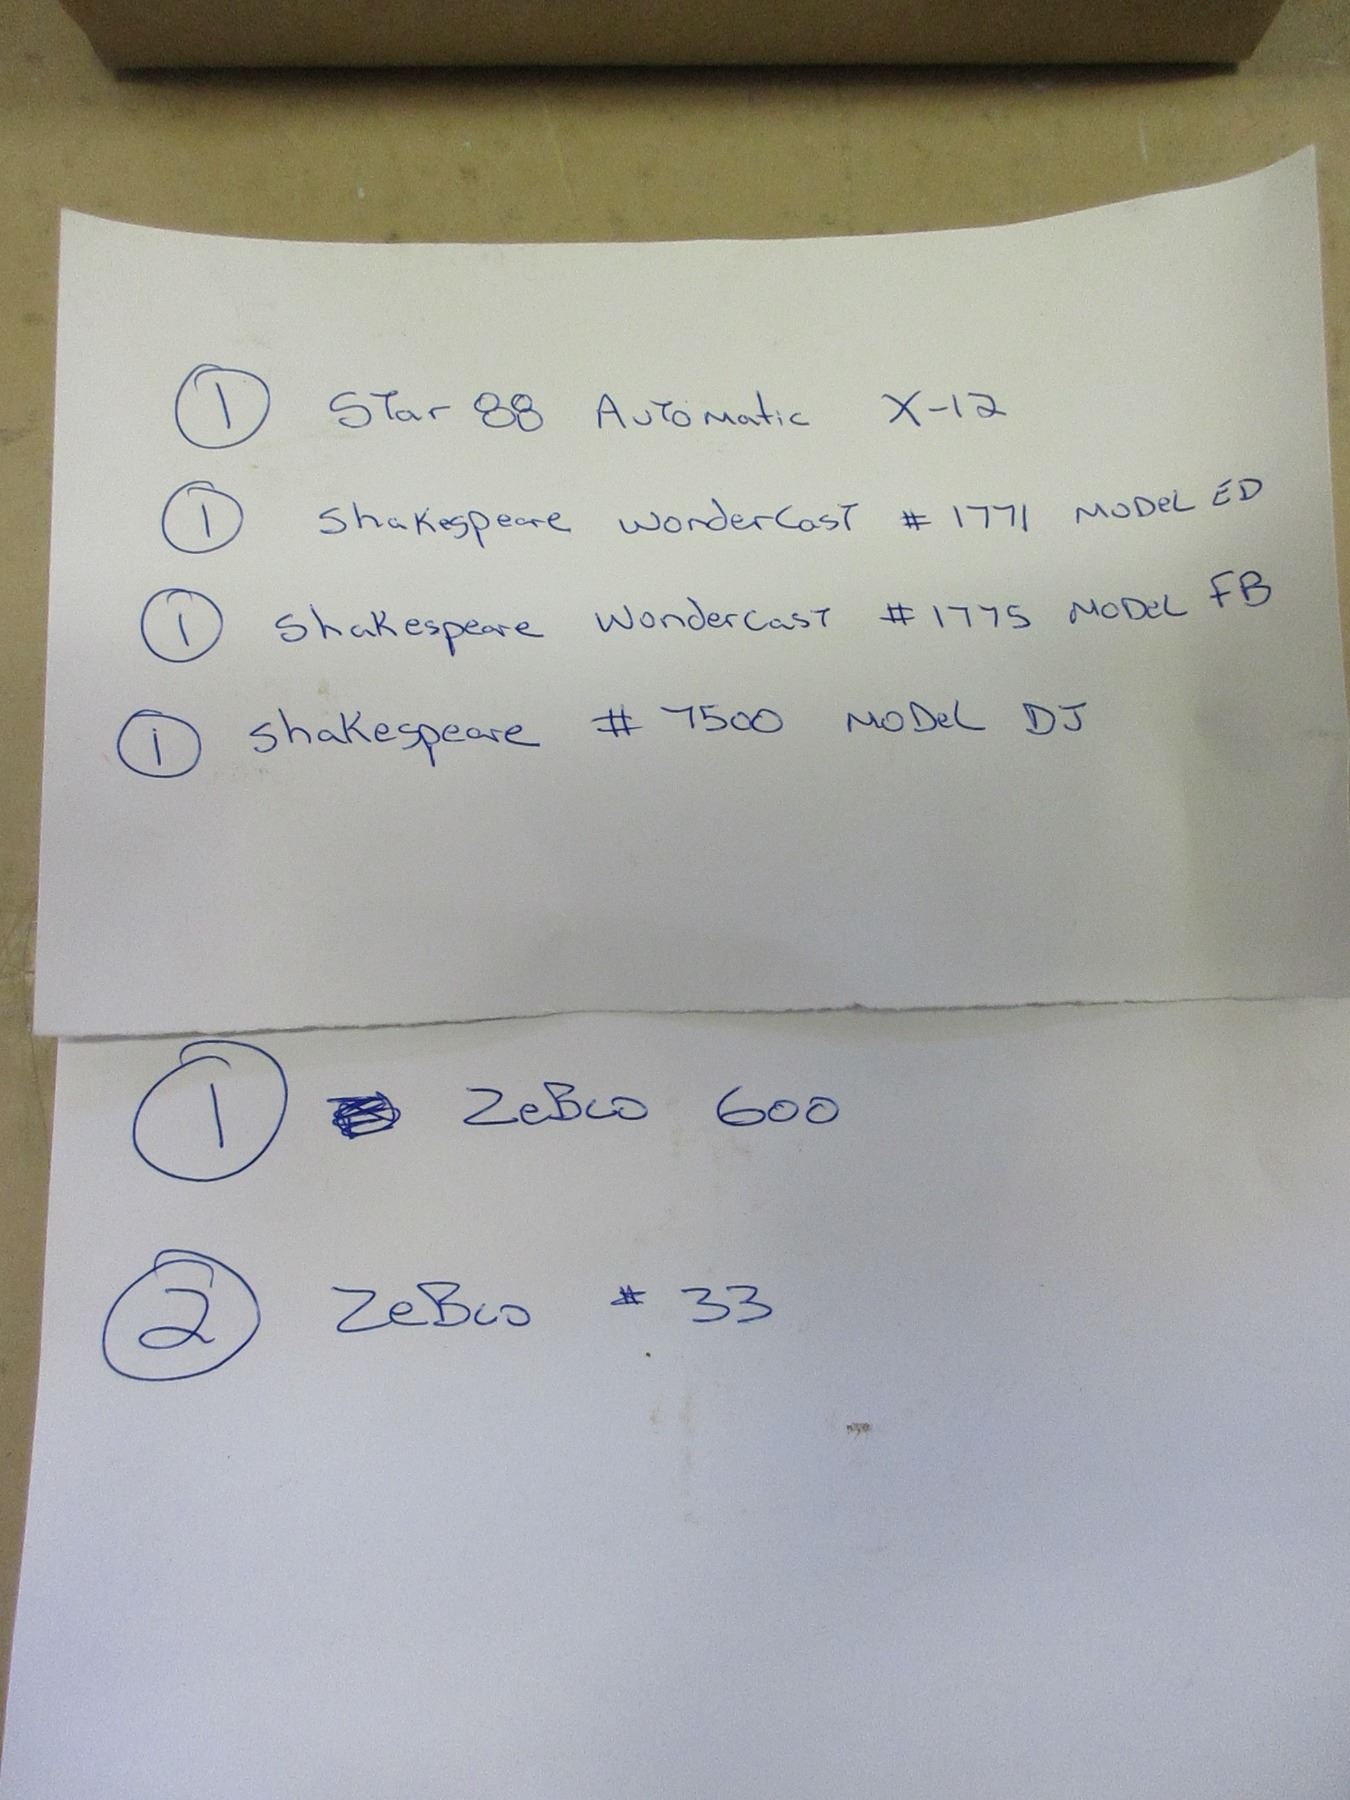 1 Star 88 Automatic X-12
1 Shakespeare WonderCast # 1771 Model ED
1 Shakespeare Wondercast # 1775 Model FB
1 Shakespeare # 7500 Model DJ
1 ZeBco 600
2 ZeBco # 33